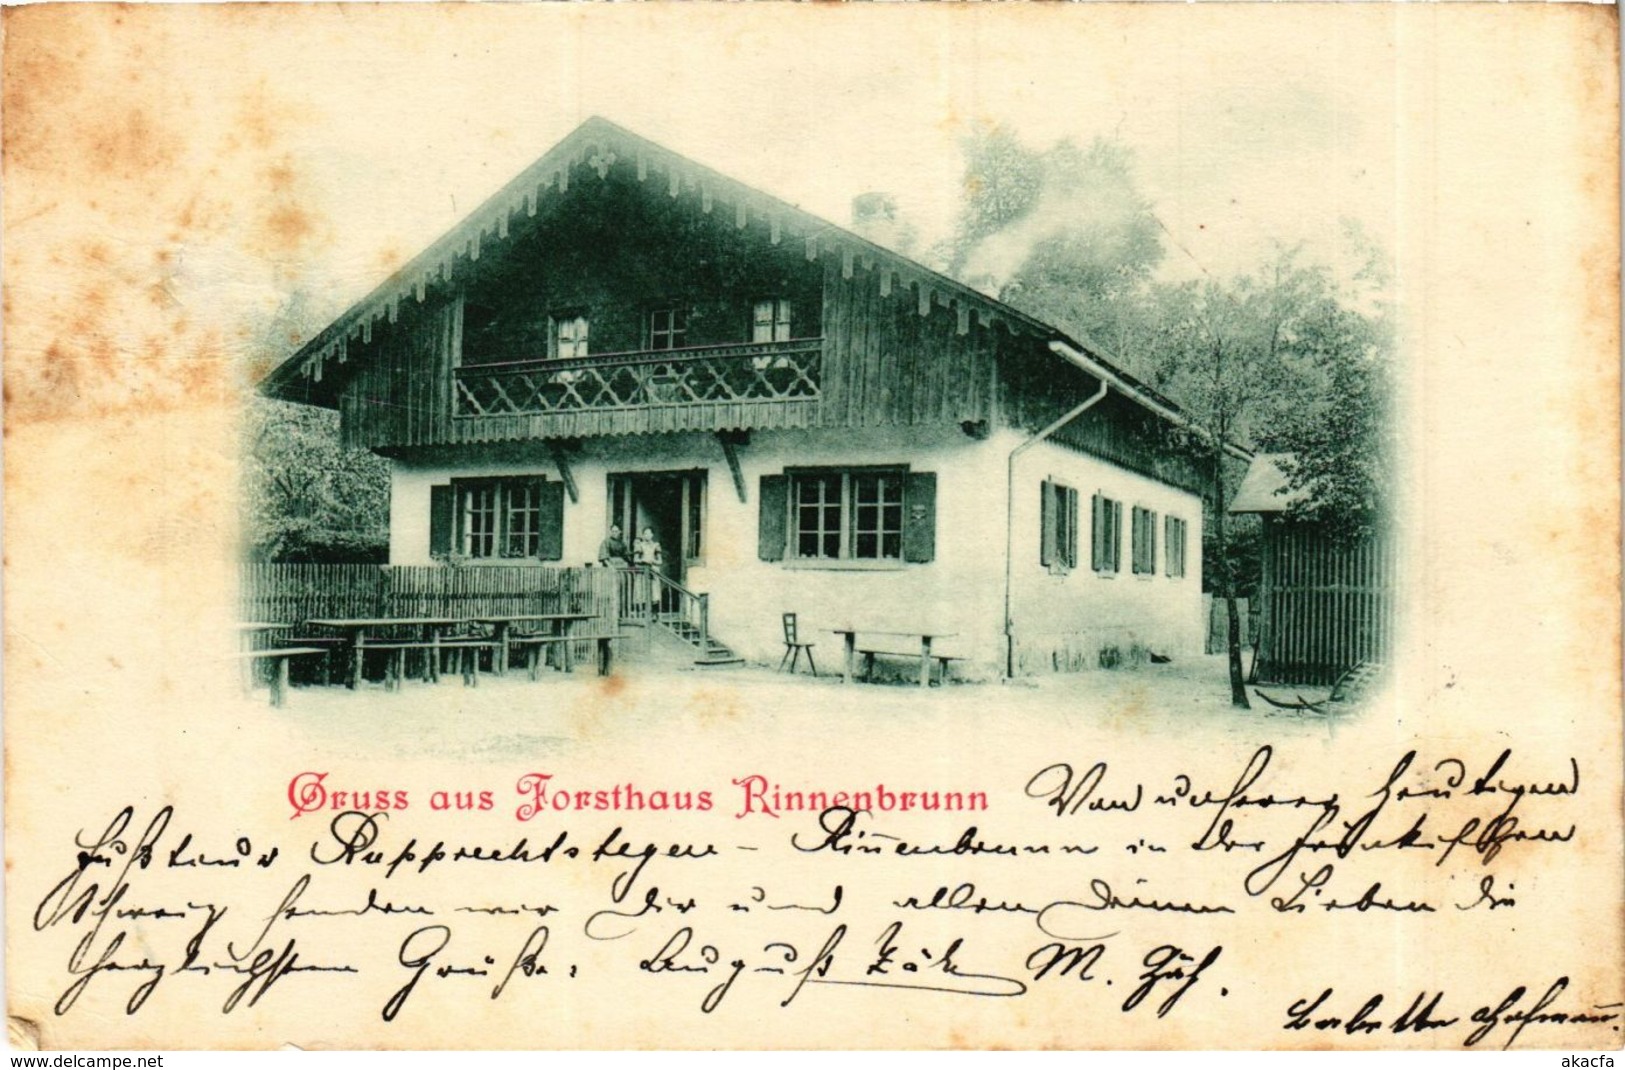 Gruss aus Forsthaus Rinnenbrunn
Von unserer heutigen
Fußtour Rupprechtstegen – Rinnenbrunn in der fränkischen
Schweiz senden wir Dir und allen Deinen Lieben die
herzlichsten Grüße. August M.
Babette Hofmann.
delcampe.net
akacfa